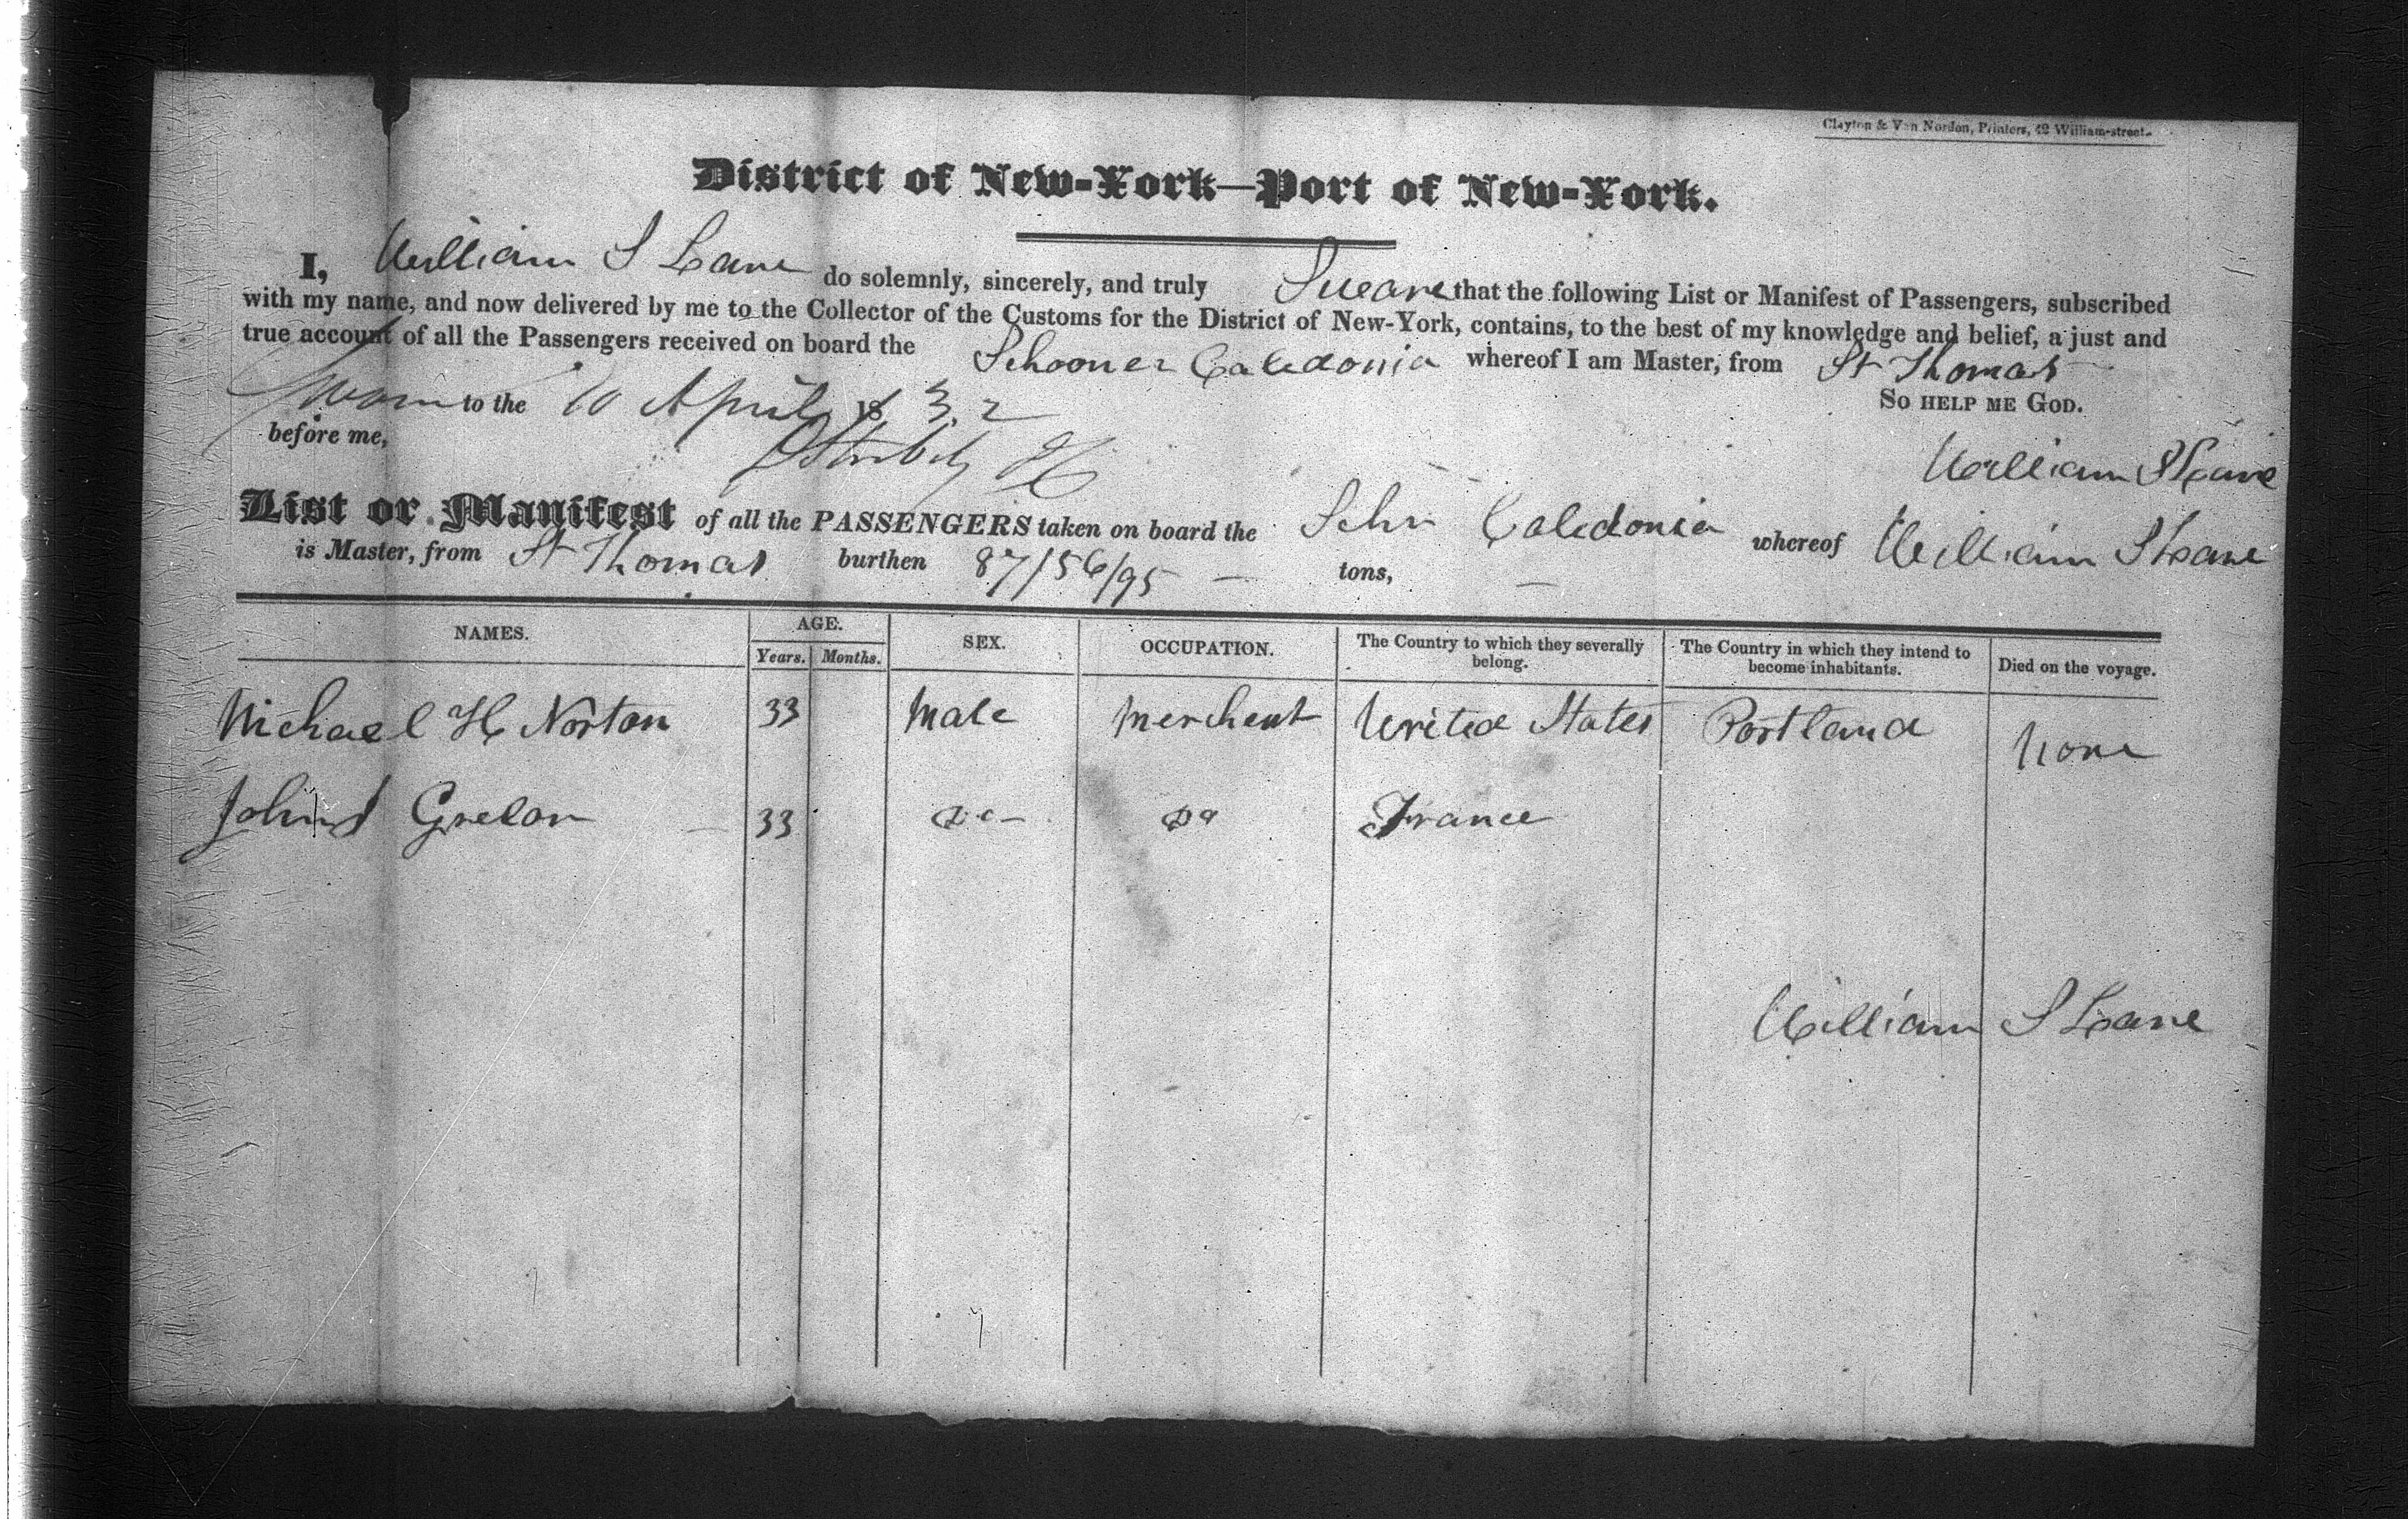 Clayton & Van Norden, Printers, 42 William-street.
District of New-York—Port of New-York.
I, William S Lane do solemnly, sincerely, and truly Sweare that the following List or Manifest of Passengers, subscribed
with my name, and now delivered by me to the Collector of the Customs for the District of New-York, contains, to the best of my knowledge and belief, a just and
true account of all the Passengers received on board the Schooner Caledonia whereof I am Master, from St Thomas
Sworn to the 10 April 1832 So help me God.
before me,
William S Lane
List or Manifest of all the PASSENGERS taken on board the Schr Caledonia whereof William S Lane
is Master, from St Thomas burthen 87/56/95 — tons, —
NAMES. AGE. SEX. OCCUPATION. The Country to which they severally belong. The Country in which they intend to become inhabitants. Died on the voyage.
Years. Months.
Michael H Norton 33 Male Merchent United States Portland None
John S Grelon 33 Do Do France
William S Lane